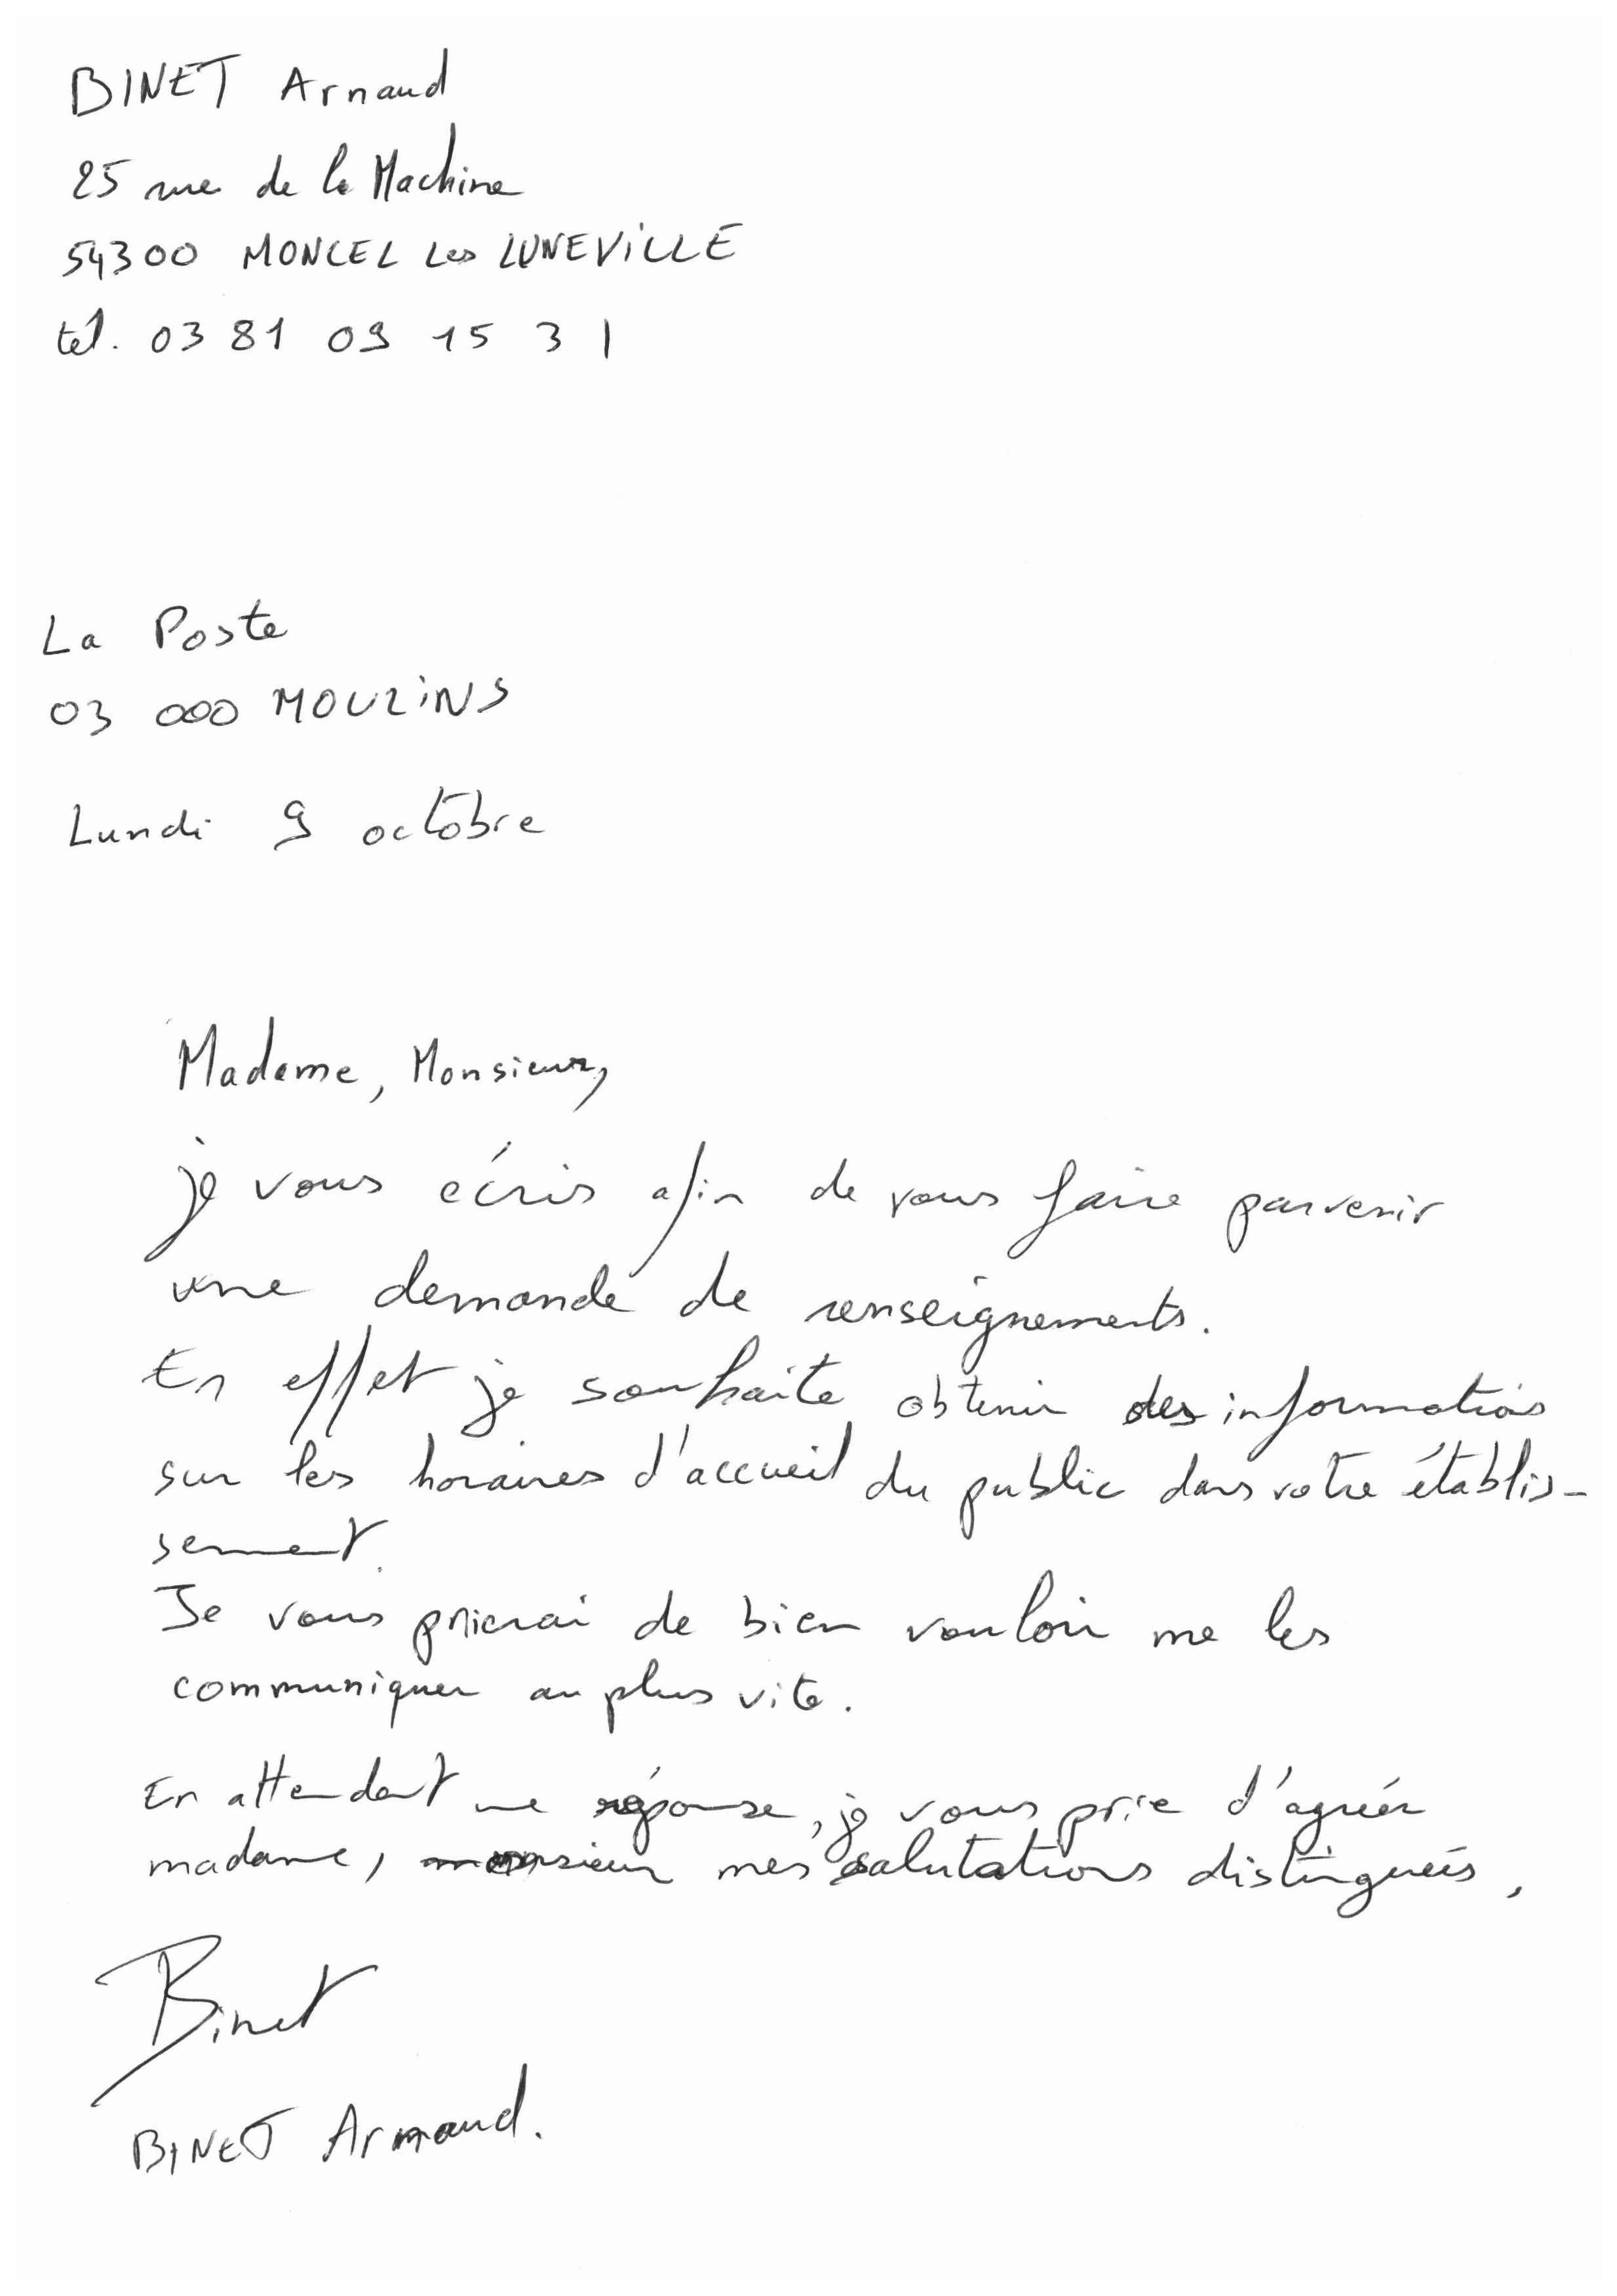 BINET Arnaud
25 rue de la Machine
54300 MONCEL Les LUNEVILLE
tél. 03 81 09 15 31
La Poste
03 000 MOULINS
Lundi 9 octobre
Madame, Monsieur,
je vous écris afin de vous faire parvenir
une demande de renseignements.
En effet je souhaite obtenir des informations
sur les horaires d'accueil du public dans votre établis-
sement.
Je vous prierai de bien vouloir me les
communiquer au plus vite.
En attendant une réponse, je vous prie d'agréer
madame, monsieur mes salutations distinguées,
Binet
BINET Arnaud.